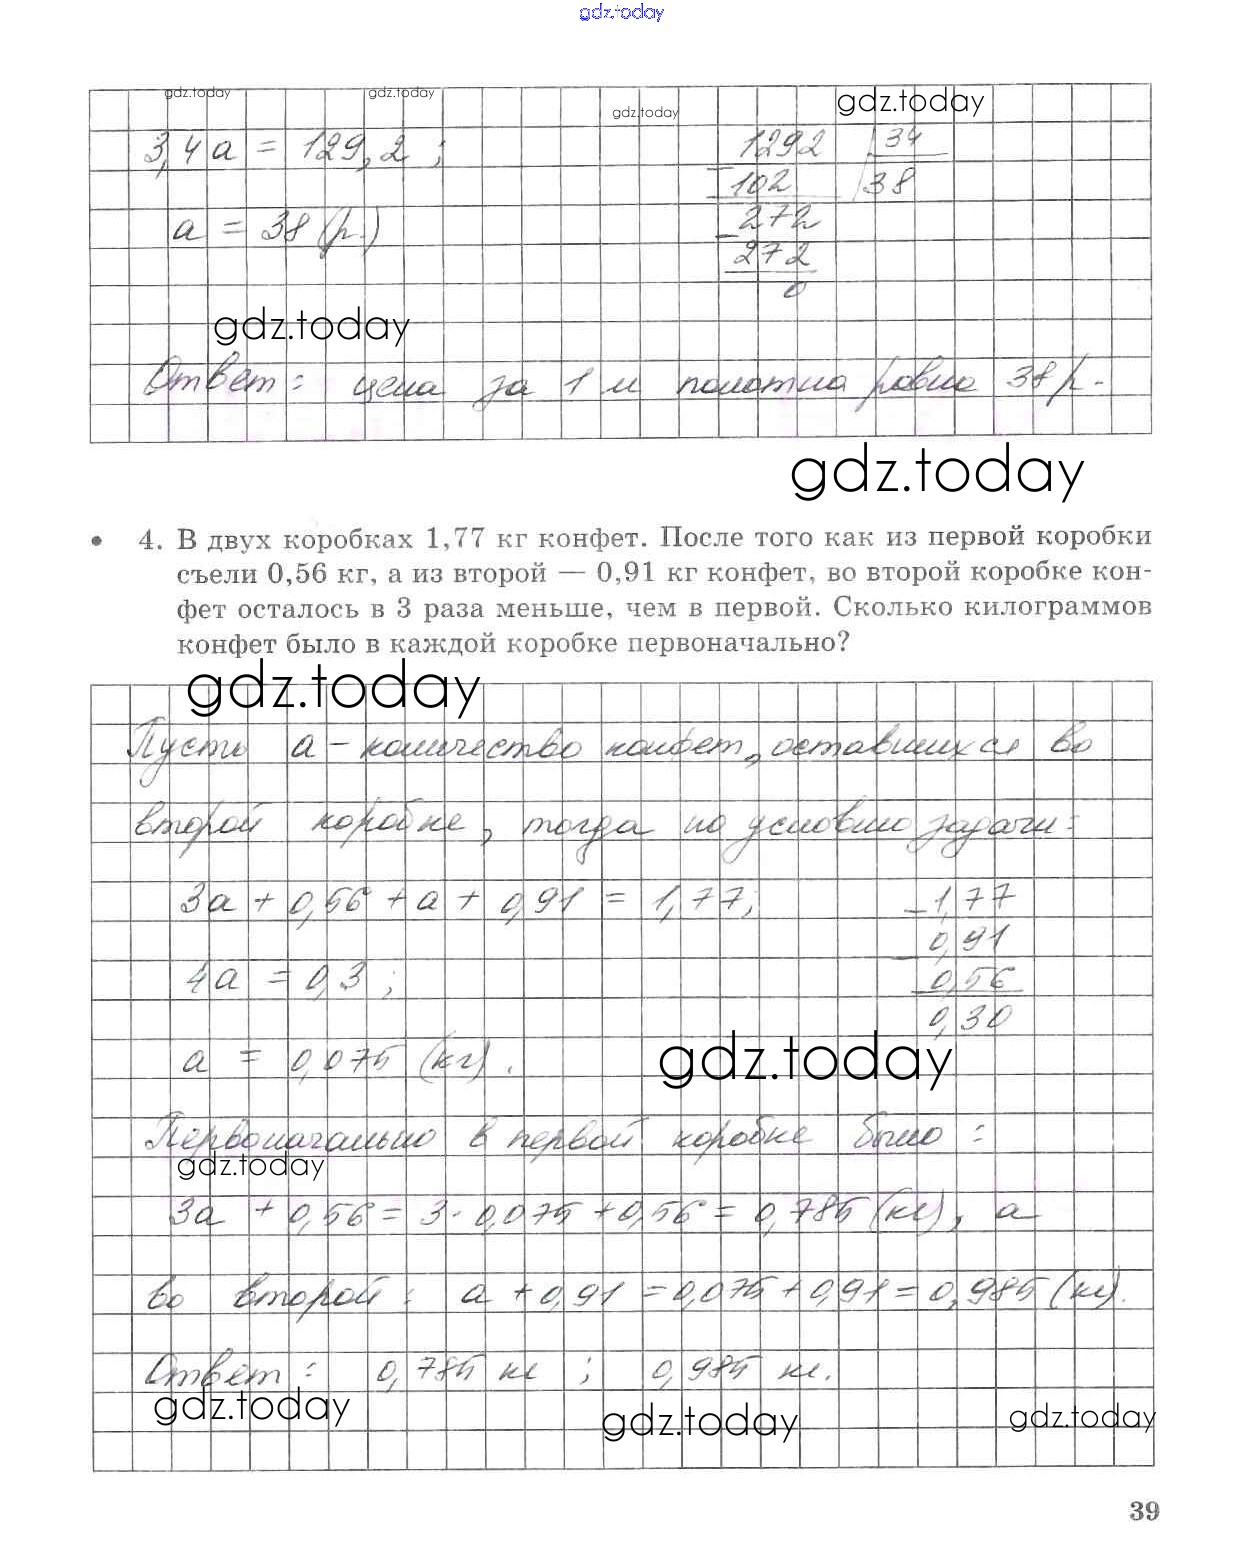 gdz.today
gdz.today gdz.today gdz.today gdz.today
3,4a = 129,2 ; 1292 34
102 38
a = 38 (р.) 272
272
0
gdz.today
Ответ: цена за 1 м полотна равна 38 р.
gdz.today
• 4. В двух коробках 1,77 кг конфет. После того как из первой коробки
съели 0,56 кг, а из второй — 0,91 кг конфет, во второй коробке кон-
фет осталось в 3 раза меньше, чем в первой. Сколько килограммов
конфет было в каждой коробке первоначально?
gdz.today
Пусть a – количество конфет, оставшихся во
второй коробке, тогда по условию задачи:
3a + 0,56 + a + 0,91 = 1,77; – 1,77
– 0,91
4a = 0,3 ; 0,56
0,30
a = 0,075 (кг) . gdz.today
Первоначально в первой коробке было :
gdz.today
3a + 0,56 = 3 · 0,075 + 0,56 = 0,785 (кг), а
во второй : a + 0,91 = 0,075 + 0,91 = 0,985 (кг).
Ответ : 0,785 кг ; 0,985 кг.
gdz.today gdz.today gdz.today
39